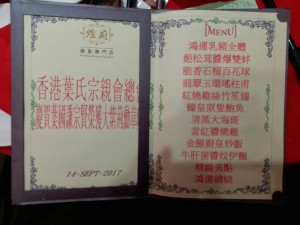 煌府
香港葉氏宗親會總
慶賀葉國謙宗賢榮獲大紫荊勳章
14-SEPT-2017
[MENU]
鴻運乳豬全體
姬松茸醬爆雙蚌
脆香石榴百花球
翡翠玉環瑤柱甫
紅燒雞絲竹笙翅
蠔皇原隻鮑魚
清蒸大海斑
當紅醬燒雞
金腿廚皇炒飯
牛肝菌醬炆伊麵
精緻美點
鴻運綿綿